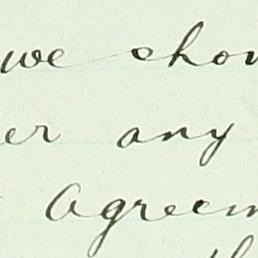 we shou
er any
Agreem